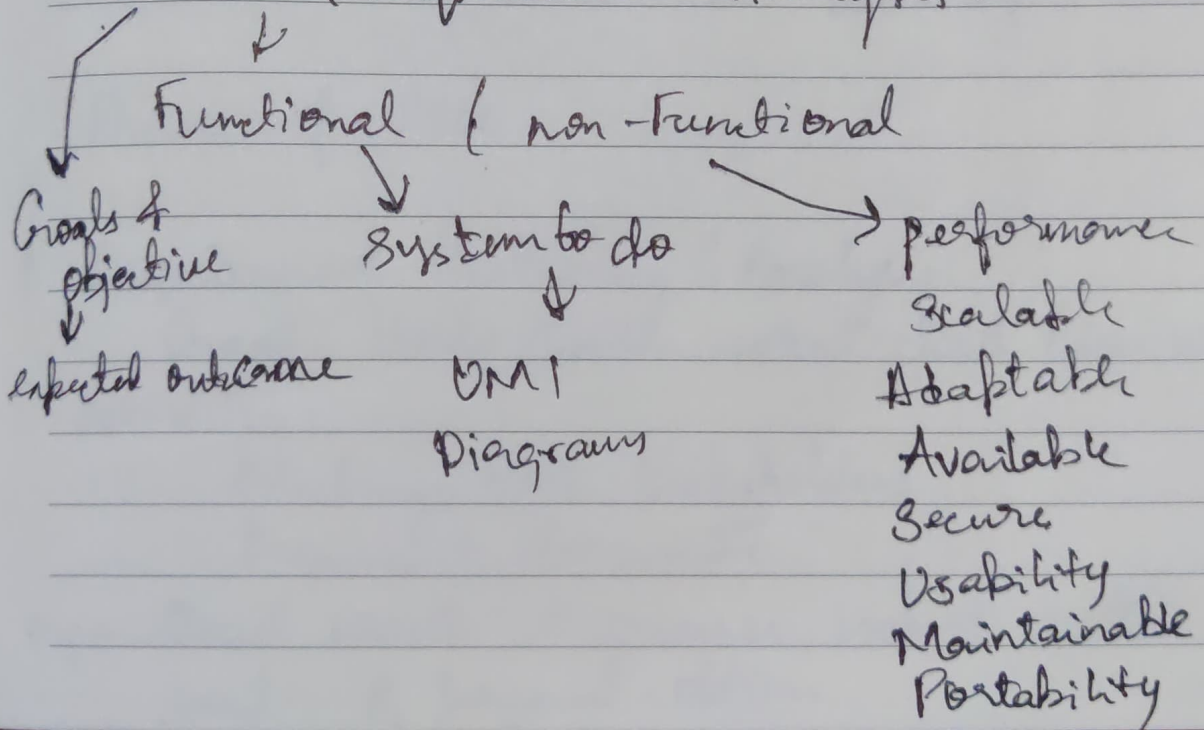 Functional ( non-Functional
Goals &
objective
expected outcome
System to do
UMl
Diagrams
performance
Scalable
Adaptable
Available
Secure
Usability
Maintainable
Portability